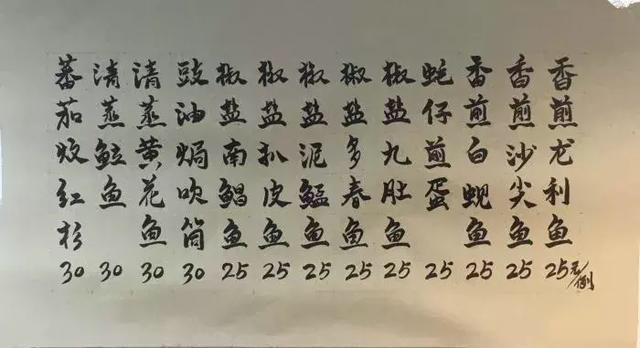 香煎龙利鱼 25元/例
香煎沙尖鱼 25
香煎白蚬鱼 25
蚝仔煎蛋 25
椒盐九肚鱼 25
椒盐多春鱼 25
椒盐泥鯭鱼 25
椒盐扒皮鱼 25
椒盐南鲳鱼 25
豉油焗吹筒 30
清蒸黄花鱼 30
清蒸鱼 30
蕃茄炆红杉 30